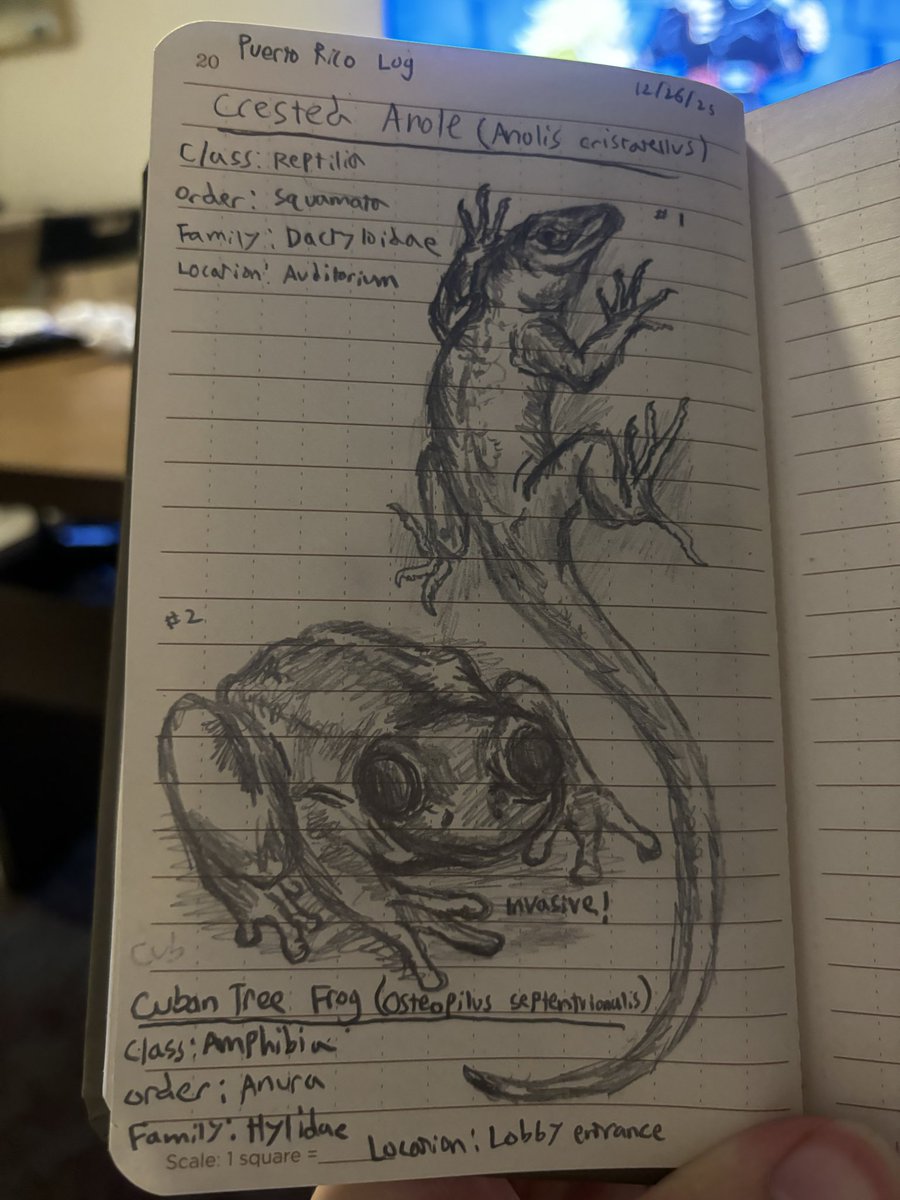 20 Puerto Rico Log
12/26/25
Crested Anole (Anolis cristatellus)
Class: Reptilia
Order: Squamata
Family: Dactyloidae
Location: Auditorium
#1
#2
invasive!
Cub
Cuban Tree Frog (Osteopilus septentrionalis)
Class: Amphibia
order: Anura
Family: Hylidae
Location: Lobby entrance
Scale: 1 square =